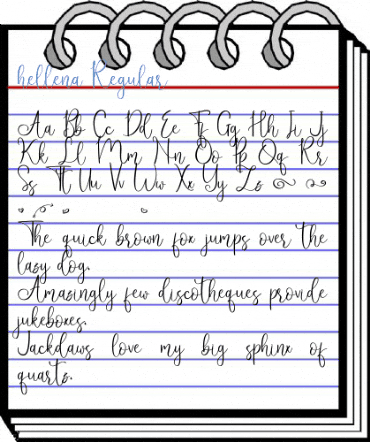 hellena Regular
Aa Bb Cc Dd Ee Ff Gg Hh Ii Jj
Kk Ll Mm Nn Oo Pp Qq Rr
Ss Tt Uu Vv Ww Xx Yy Zz
The quick brown fox jumps over the
lazy dog.
Amazingly few discotheques provide
jukeboxes.
Jackdaws love my big sphinx of
quartz.